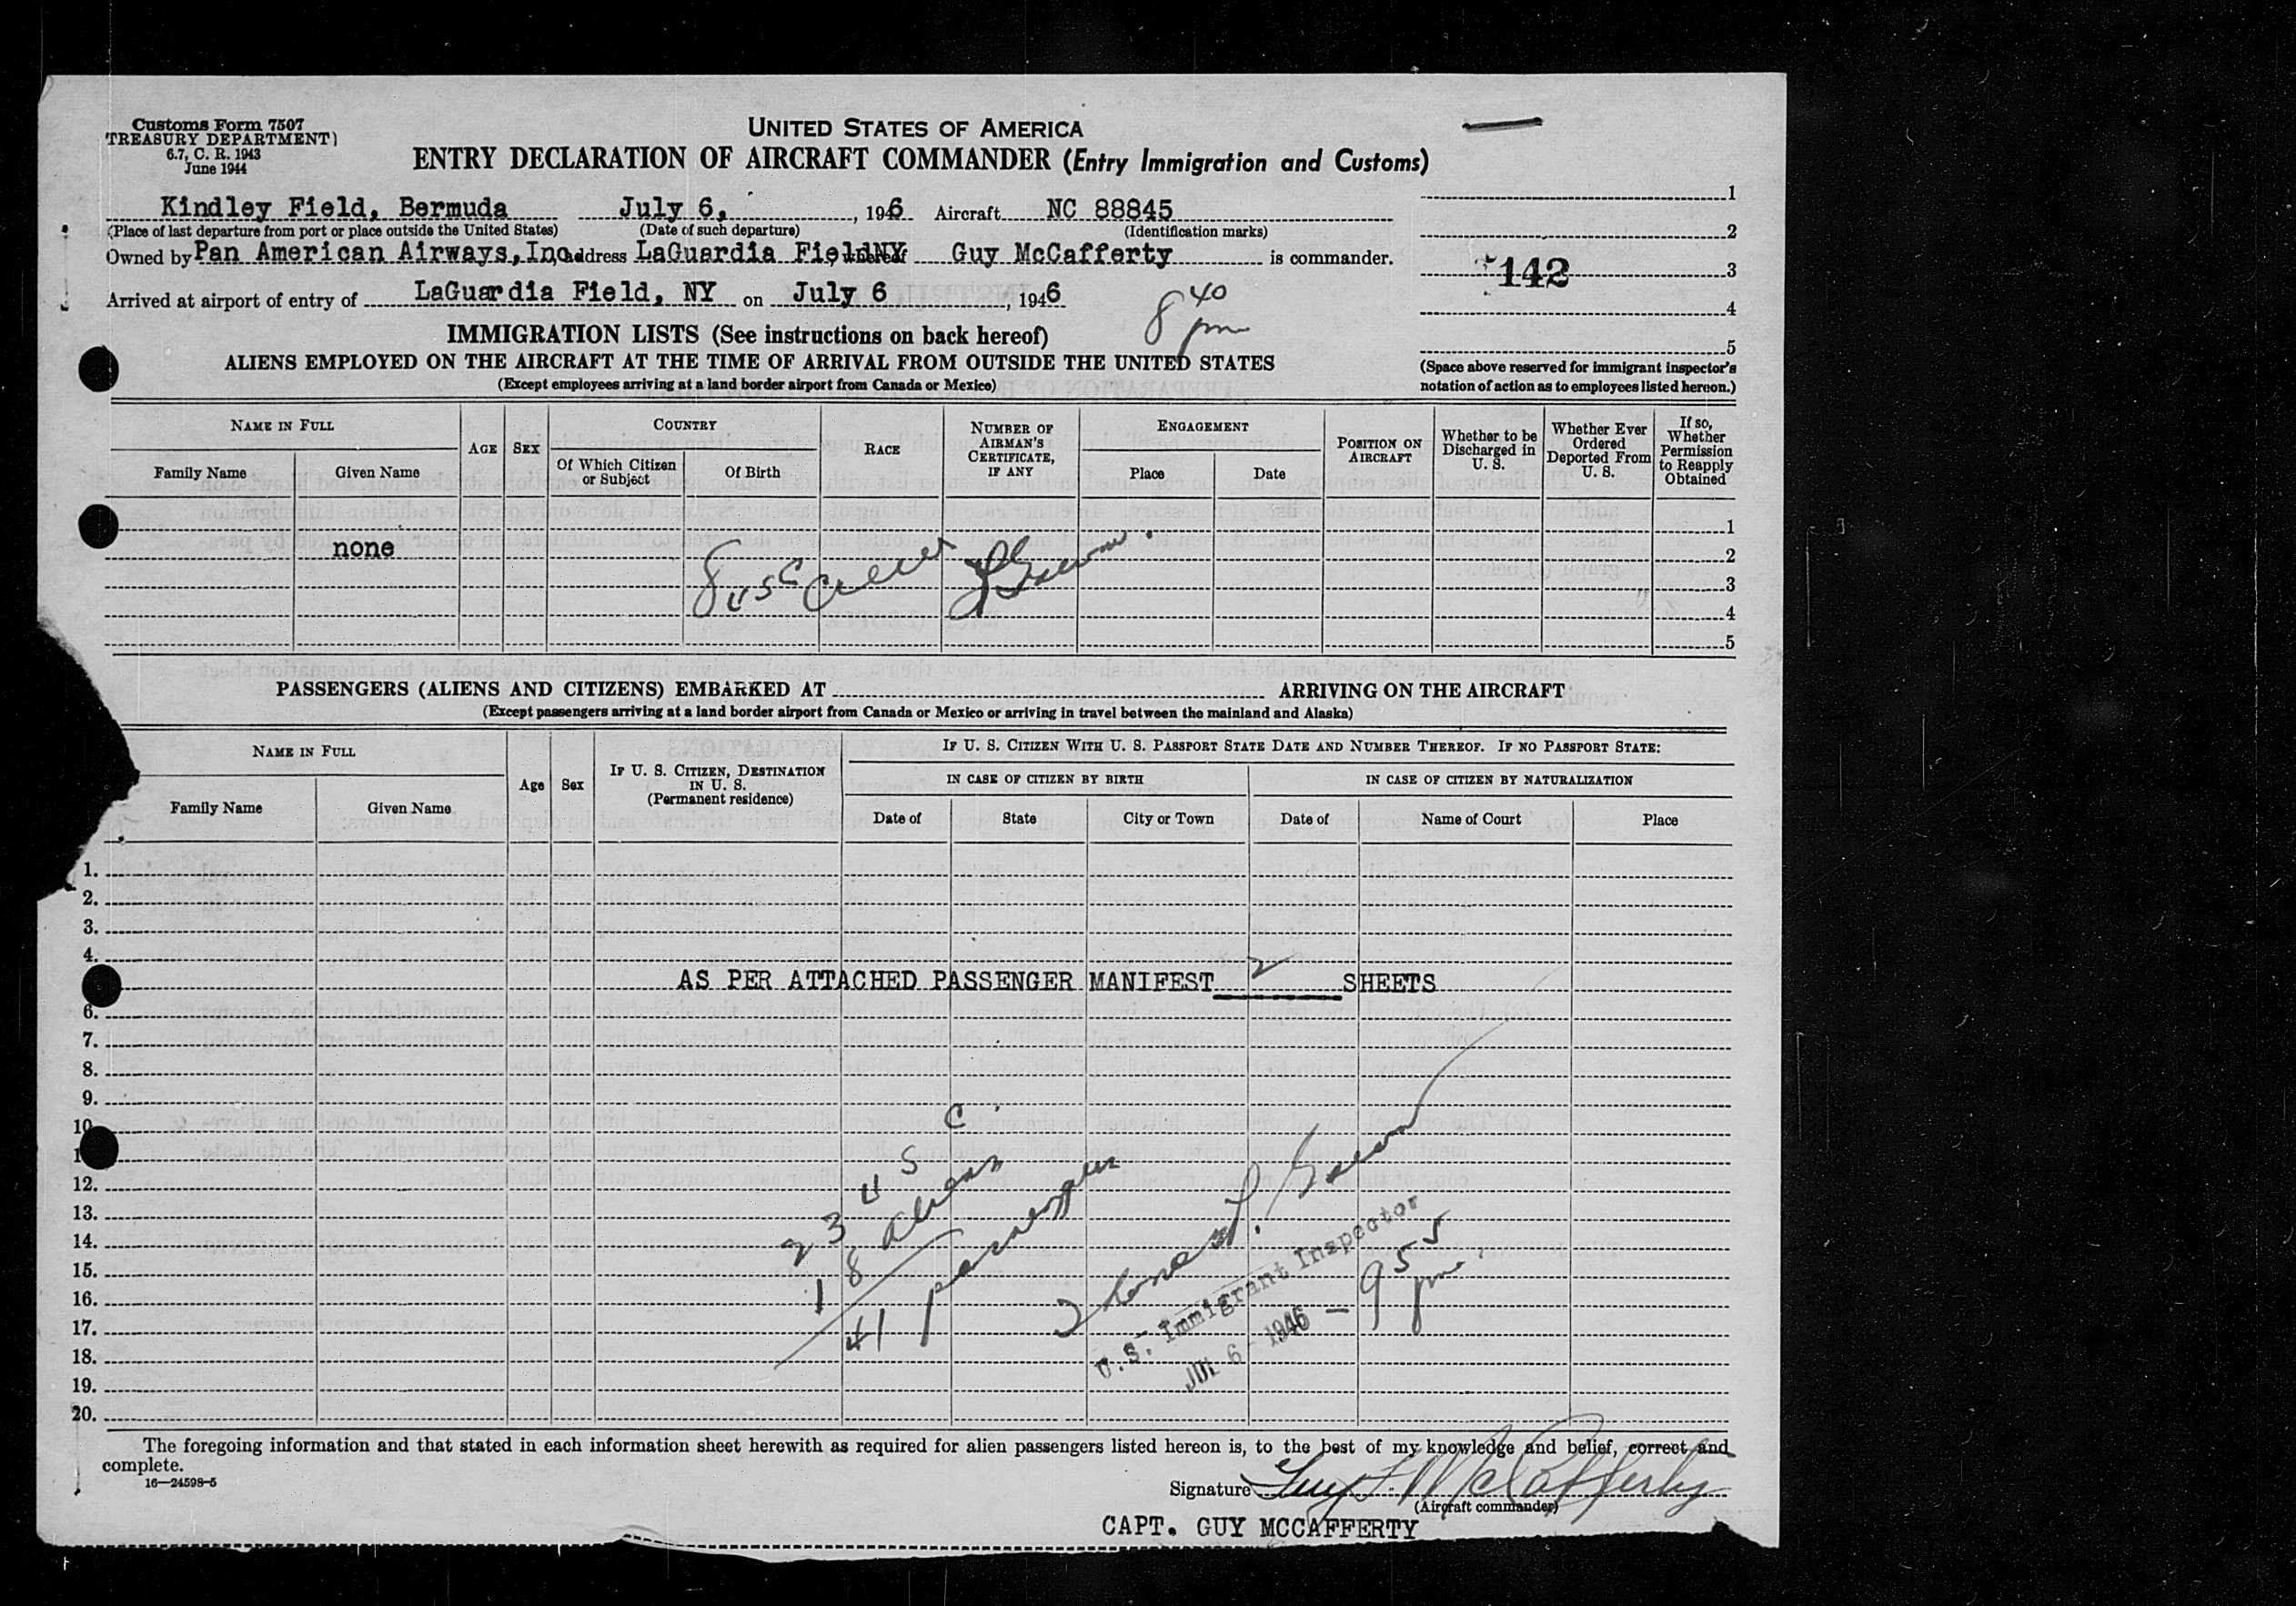 Customs Form 7507
TREASURY DEPARTMENT)
6.7, C. R. 1943
June 1944
UNITED STATES OF AMERICA
ENTRY DECLARATION OF AIRCRAFT COMMANDER (Entry Immigration and Customs)
Kindley Field, Bermuda July 6, , 1946 Aircraft NC 88845
(Place of last departure from port or place outside the United States) (Date of such departure) (Identification marks)
Owned by Pan American Airways, Inc address LaGuardia Field NY Guy McCafferty is commander.
Arrived at airport of entry of LaGuardia Field, NY on July 6 , 1946
8 40 pm
1
2
142 3
4
5
(Space above reserved for immigrant inspector's
notation of action as to employees listed hereon.)
IMMIGRATION LISTS (See instructions on back hereof)
ALIENS EMPLOYED ON THE AIRCRAFT AT THE TIME OF ARRIVAL FROM OUTSIDE THE UNITED STATES
(Except employees arriving at a land border airport from Canada or Mexico)
NAME IN FULL
Family Name
Given Name
AGE
SEX
COUNTRY
Of Which Citizen
or Subject
Of Birth
RACE
NUMBER OF
AIRMAN'S
CERTIFICATE,
IF ANY
ENGAGEMENT
Place
Date
POSITION ON
AIRCRAFT
Whether to be
Discharged in
U. S.
Whether Ever
Ordered
Deported From
U. S.
If so,
Whether
Permission
to Reapply
Obtained
1
none 2
3
4
5
8 USC
PASSENGERS (ALIENS AND CITIZENS) EMBARKED AT ARRIVING ON THE AIRCRAFT
(Except passengers arriving at a land border airport from Canada or Mexico or arriving in travel between the mainland and Alaska)
NAME IN FULL
Family Name
Given Name
Age
Sex
IF U. S. CITIZEN, DESTINATION
IN U. S.
(Permanent residence)
IF U. S. CITIZEN WITH U. S. PASSPORT STATE DATE AND NUMBER THEREOF. IF NO PASSPORT STATE:
IN CASE OF CITIZEN BY BIRTH
IN CASE OF CITIZEN BY NATURALIZATION
Date of
State
City or Town
Date of
Name of Court
Place
1.
2.
3.
4.
AS PER ATTACHED PASSENGER MANIFEST 2 SHEETS
6.
7.
8.
9.
10
1
12.
13.
14.
15.
16.
17.
18.
19.
20.
23 USC
18 aliens
41 passengers
U.S. Immigrant Inspector
JUL 6 - 1946 - 9 55 pm
The foregoing information and that stated in each information sheet herewith as required for alien passengers listed hereon is, to the best of my knowledge and belief, correct and
complete.
16—24598-5
Signature Guy F. McCafferty
(Aircraft commander)
CAPT. GUY MCCAFFERTY